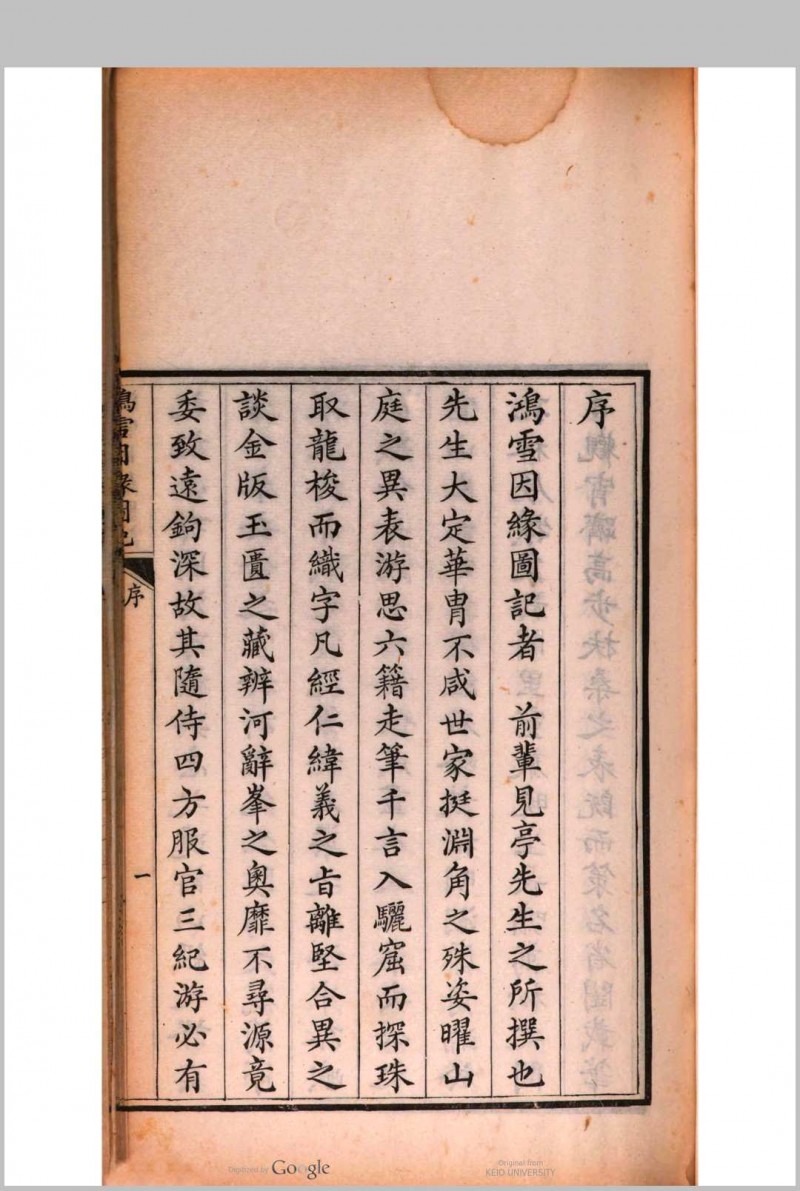 序
鴻雪因緣圖記者 前輩見亭先生之所撰也
先生大定華胄不咸世家挺淵角之殊姿曜山
庭之異表游思六籍走筆千言入驪窟而探珠
取龍梭而織字凡經仁緯義之旨離堅合異之
談金版玉匱之藏辨河辭峯之奧靡不尋源竟
委致遠鉤深故其隨侍四方服官三紀游必有
鴻雪因緣圖記
序
一
Digitized by Google
Original from
KEIO UNIVERSITY